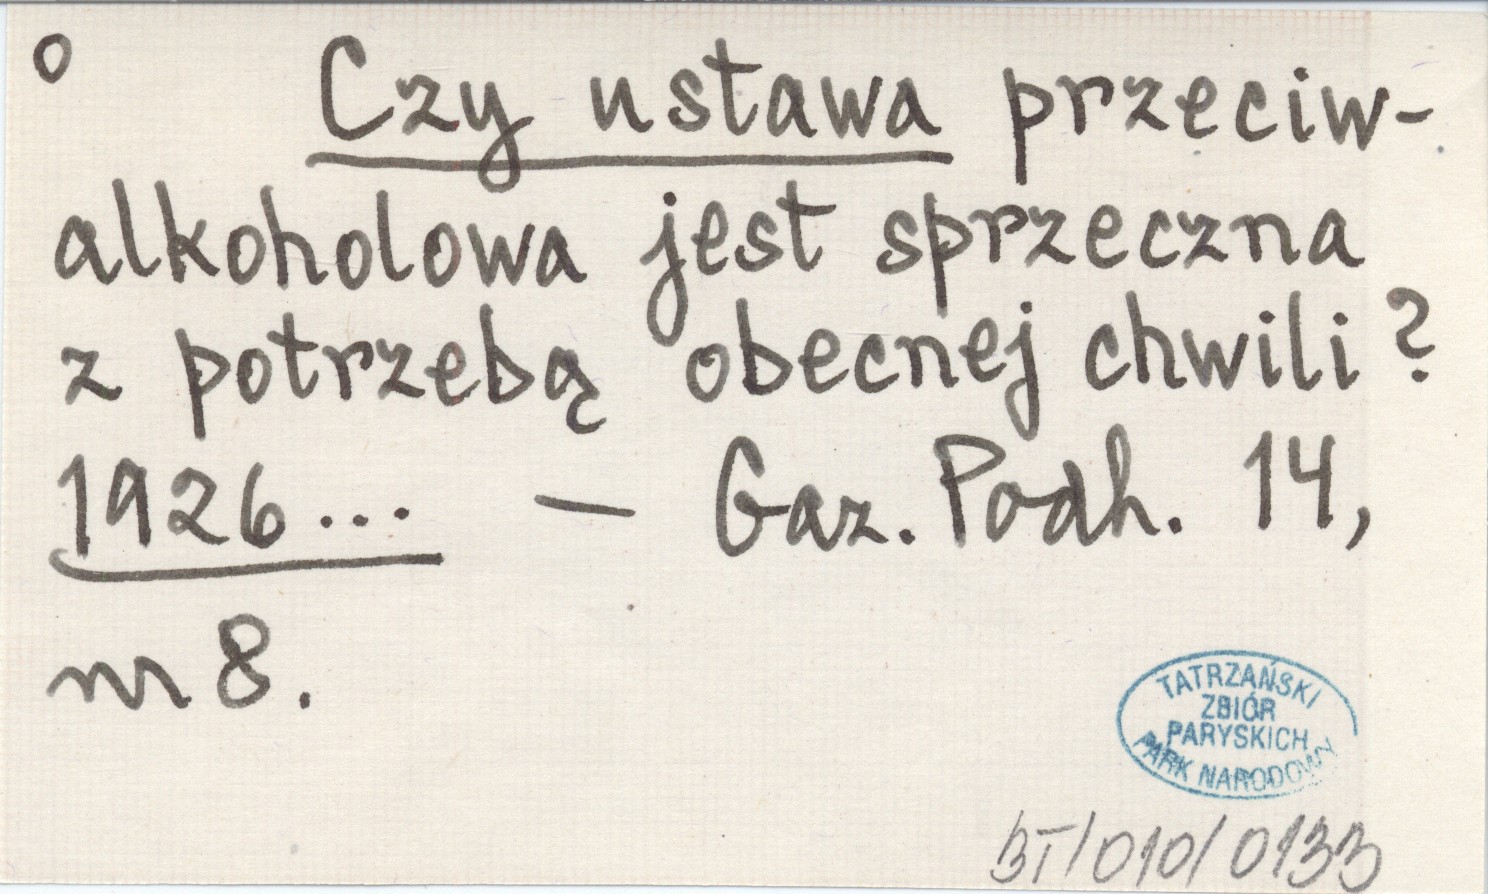 o Czy ustawa przeciw-
alkoholowa jest sprzeczna
z potrzebą obecnej chwili?
1926... — Gaz. Podh. 14,
nr 8.
TATRZAŃSKI
ZBIÓR
PARYSKICH
PARK NARODOWY
BT/010/0133